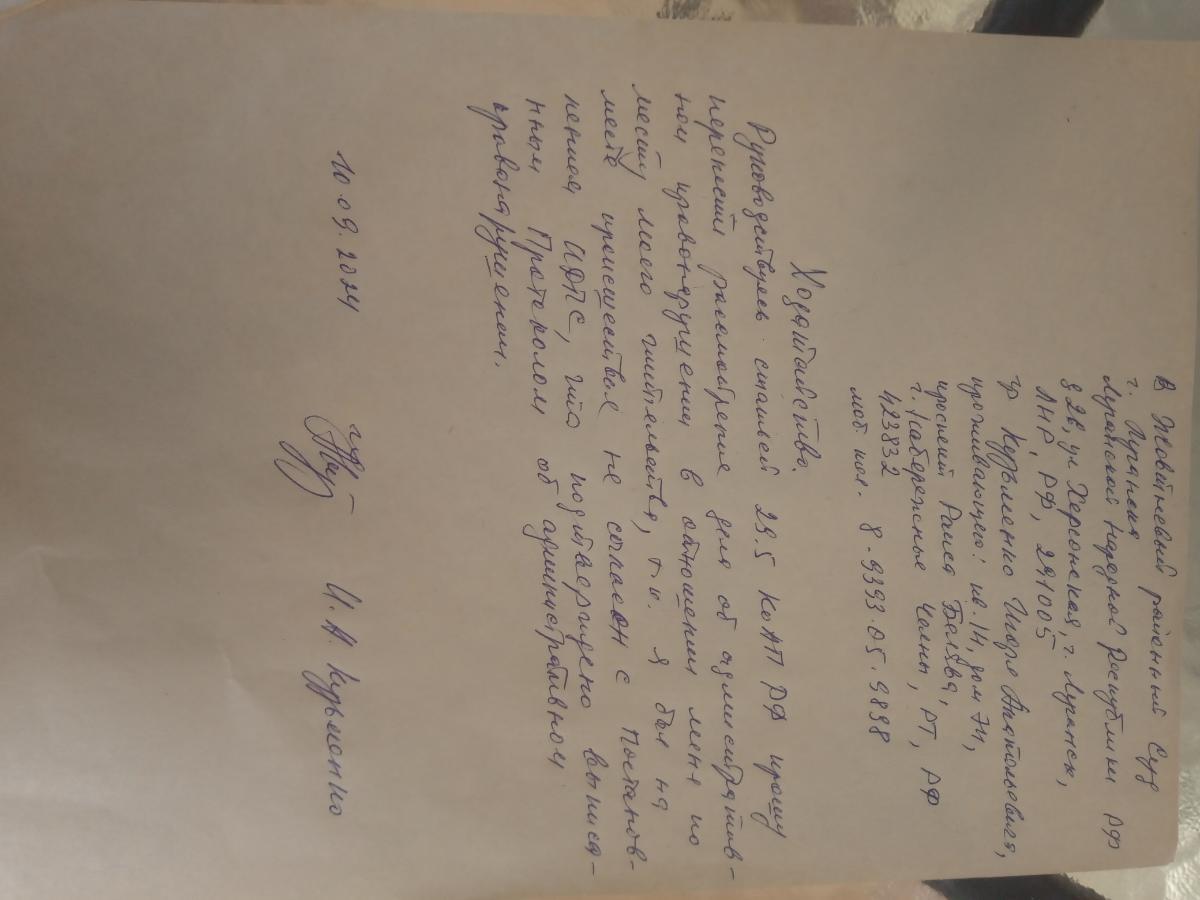 В Жовтневый районный суд
г. Луганска
Луганской Народной Республики РФ
д 2в, ул Херсонская, г. Луганск,
ЛНР, РФ, 291005
гр Курзленко Игоря Анатольевича,
проживающего: кв. 14, дом 7/4,
проспект Раиса Беляева,
г. Набережные Челны, РТ, РФ
423832
моб. тел. 8.9393.05.9898
Ходатайство.
Руководствуясь статьей 29.5 КоАП РФ прошу
перенести рассмотрение дела об административ-
ном правонарушении в отношении меня по
месту моего жительства, т.к. я был на
месте происшествия не согласен с Постанов-
лением ИДПС, что подтверждено выписа-
нным Протоколом об административном
правонарушением.
10.09.2024 И. А. Курзленко